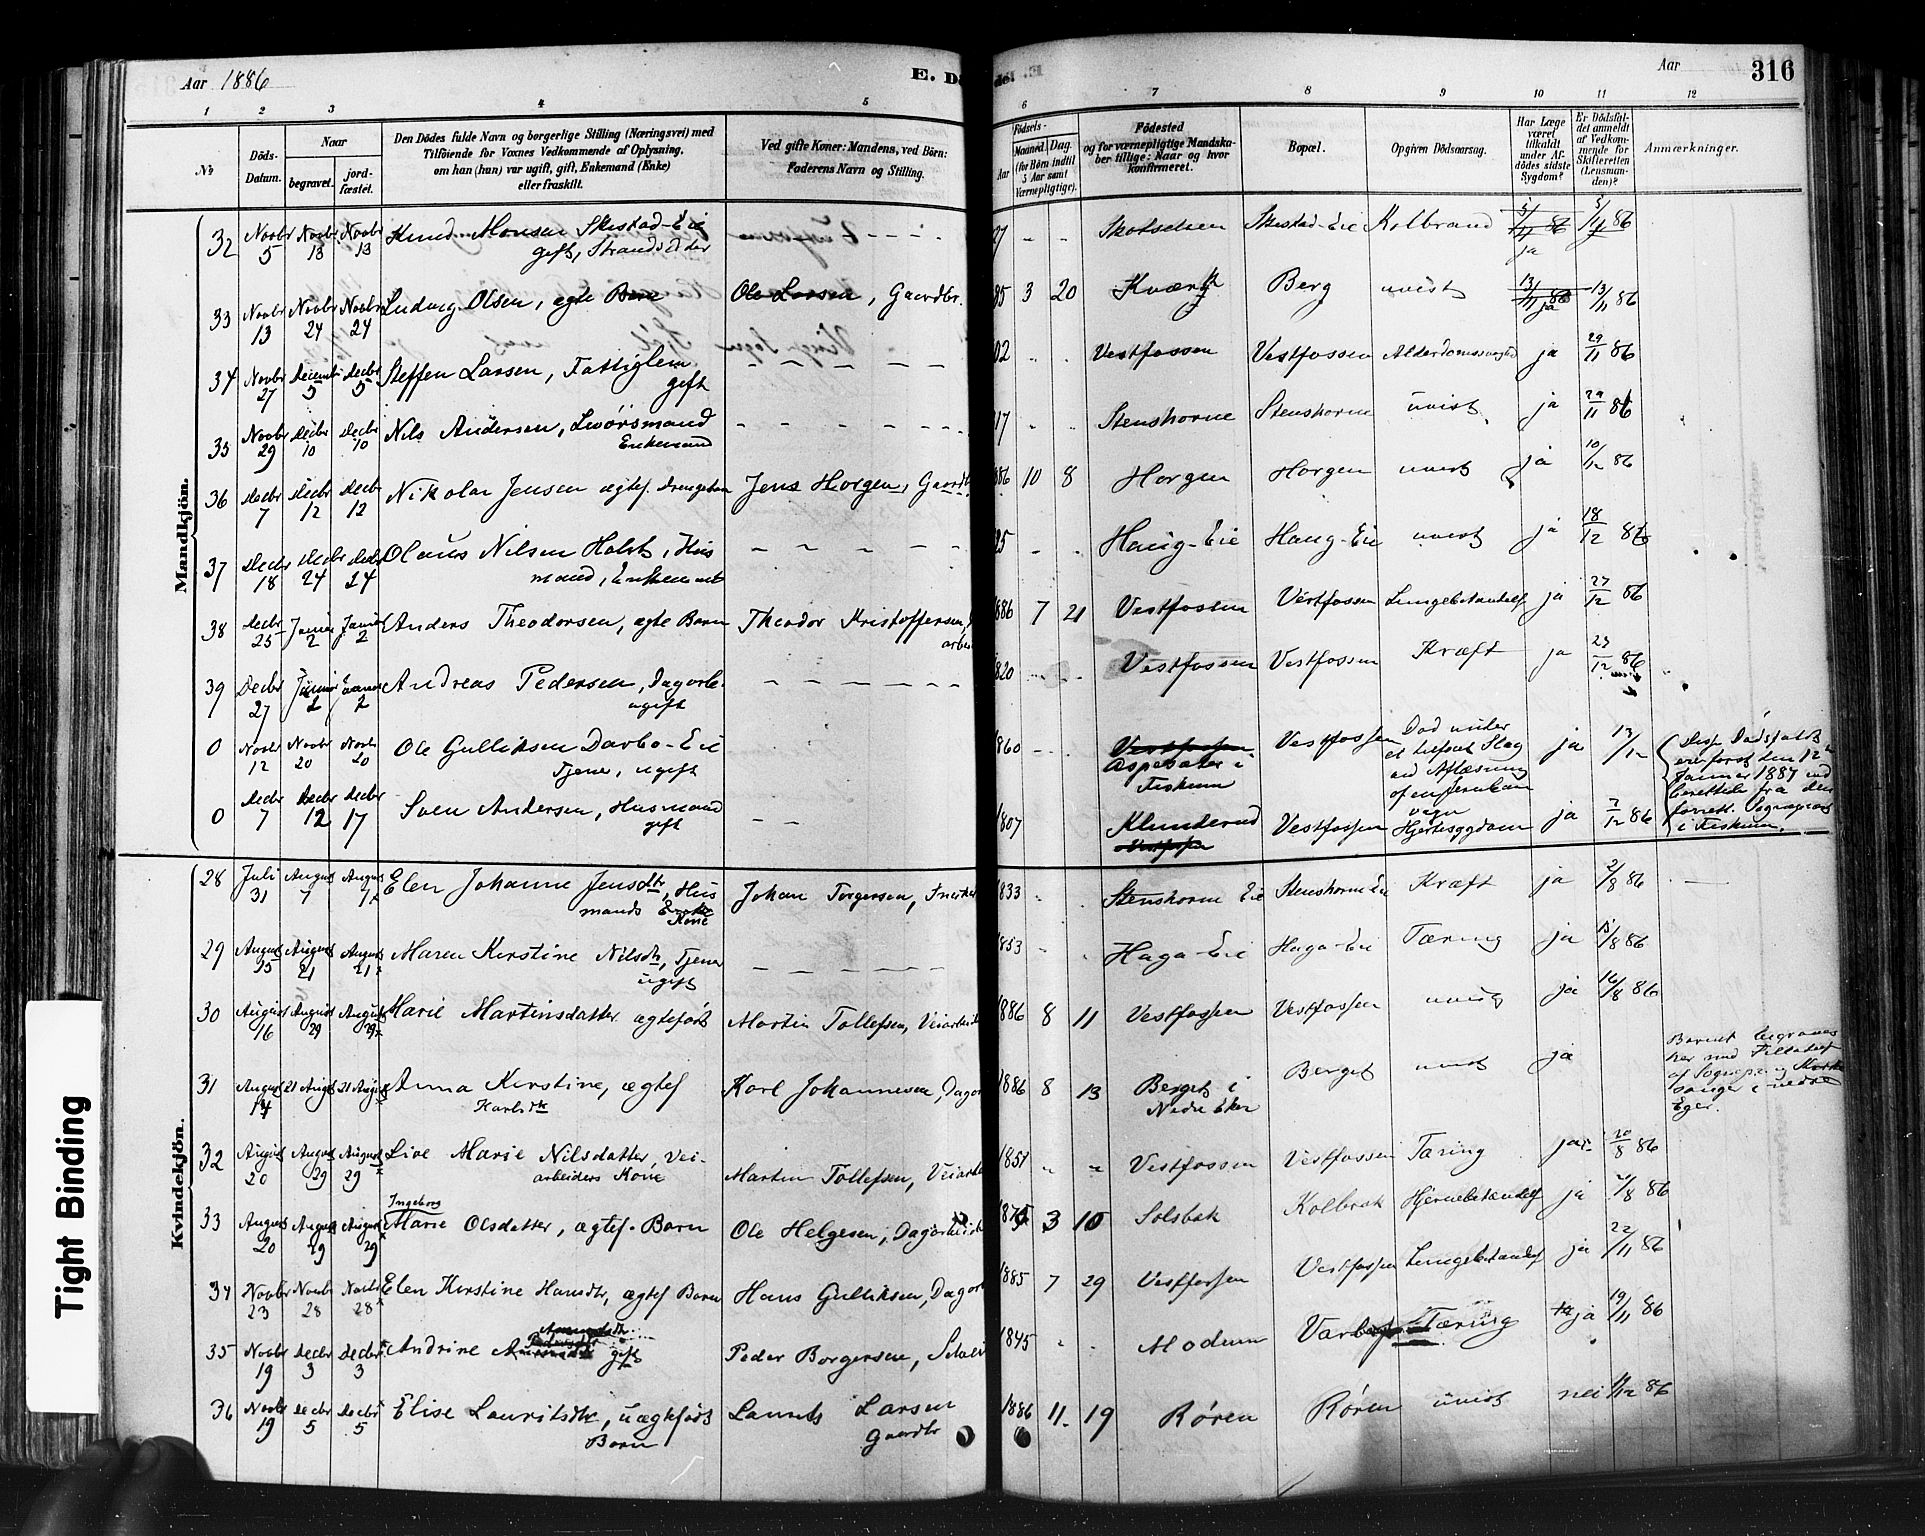 Aar 1886
E. Dö
de.
Aar
316
1 2 3 4 5 6 7 8 9 10 11 12
No
Döds-Datum.
Naar
begravet.
jord-fæstet.
Den Dödes fulde Navn og borgerlige Stilling (Næringsvei) med
Tilföiende for Voxnes Vedkommende af Oplysning,
om han (hun) var ugift, gift, Enkemand (Enke)
eller fraskilt.
Ved gifte Koner: Mandens, ved Börn:
Faderens Navn og Stilling.
Födsels-
Aar
Maaned.
Dag.
(for Börn indtil
5 Aar samt
Værnepligtige).
Födested
og for værnepligtige Mandska-
ber tillige: Naar og hvor
konfirmeret.
Bopæl.
Opgiven Dödsaarsag.
Har Læge
været
tilkaldt
under Af-
dödes sidste
Sygdom?
Er Dödsfal-
det anmeldt
af Vedkom-
mende for
Skifteretten
(Lensman-
den)?
Anmærkninger.
Mandkjön.
32 Novbr 5 Novbr 13 Novbr 13 Knud Monsen Skistad-Eie gift, Strandsidder 27 - - Skotselven Skistad-Eie Kolbrand 5/11 86 ja 5/11 86
33 Novbr 13 Novbr 24 Novbr 24 Ludvig Olsen, ægte Barn Ole Larsen, Gaardbr. 85 3 20 Kværk Berg uvist 13/11 86 ja 13/11 86
34 Novbr 27 Decemb 5 Decbr 5 Steffen Larsen, Fattiglem gift 02 Vestfossen Vestfossen ja 29/11 86
35 Novbr 29 Decbr 10 Decbr 10 Nils Andersen, Enkemand 17 Stenshorne Stenshorne uvist ja 29/11 86
36 Decbr 7 Decbr 12 Decbr 12 Nikolai Jensen ægtef. Drengebarn Jens Horgen, Gaardb 886 10 8 Horgen Horgen uvist ja 10/12 86
37 Decbr 18 Decbr 24 Decbr 24 Olaus Nilsen Holst, Hus
mand, Enkemand 25 Haug-Eie Haug-Eie uvist ja 18/12 86
38 Decbr 25 Januar 2 Januar 2 Anders Theodorsen, ægte Barn Theodor Kristoffersen, arbei 886 7 21 Vestfossen Vestfossen Lungebetændelse ja 27/12 86
39 Decbr 27 Januar 2 Januar 2 Andreas Pedersen, Dagarb. ugift 820 Vestfossen Vestfossen Kræft ja 27/12 86
0 Novbr 12 Novbr 20 Novbr 20 Ole Gulliksen Darbo-Eie
Tjener, ugift 860 Vestfossen
i Fiskum Vestfossen Död under
et tilfört Slag
ved Aflæsning
af en Jernban
vogn ja 13/12 Disse Dödsfald
er först den 12
Januar 1887 ind
berettede fra den
forrett. Sogneprest
i Fiskum.
0 Decbr 7 Decbr 12 Decbr 17 Sven Andersen, Husmand
gift 1807 Klunderud
Vestfossen Vestfossen Hjertesygdom ja 7/12 86
Kvindekjön.
28 Juli 31 August 7 August 7 Elen Johanne Jensdtr, Hus
mands Enke
Kone Johan Torgersen, 1833 Stenshorne Eie Stenshorne Eie Kræft ja 2/8 86
29 August 15 August 21 August 21 Maren Kirstine Nilsdtr, Tjener
ugift 1853 Haga-Eie Haga-Eie Tæring ja 15/8 86
30 August 16 August 29 August 29 Marie Martinsdatter ægteföd Martin Tollefsen, Veiarbeid 1886 8 11 Vestfossen Vestfossen uvist ja 16/8 86
31 August 14 21 August 21 August Anna Kirstine, ægtef
Karlsdtr Karl Johannesen, Dagar 1886 8 13 Berget i
Nedre Eker Berget uvist ja Barnet begraves
her med Tilladelse
af Sogneprest
i nedre
Eger.
32 August 20 August 29 August 29 Live Marie Nilsdatter Vei-
arbeiders Kone Martin Tollefsen, Veiarbe 1851 Vestfossen Vestfossen Tæring ja 20/8 86
33 August 20 August 29 August 29 Ingeborg
Marie Olsdatter, ægtef. Barn Ole Helgesen, Dagarbeid 3 10 Solsbak Kolbræk Hjernebetændelse ja /8 86
34 Novbr 23 Novbr 28 Novbr 28 Elen Kirstine Hansdtr, ægtef Barn Hans Gulliksen, Dagarb 1885 7 29 Vestfossen Vestfossen Lungebetændelse ja 22/11 86
35 Novbr 19 Decbr 3 Decbr 3 Andrine gift Peder Borgersen, 1845 Modum Tæring ja 19/11 86
36 Novbr 19 Decbr 5 Decbr 5 Elise Lauritsdtr, uægteföd
Barn Laurits Larsen
Gaardbr 1886 11 19 Rören Rören uvist nei /12 86
Tight Binding